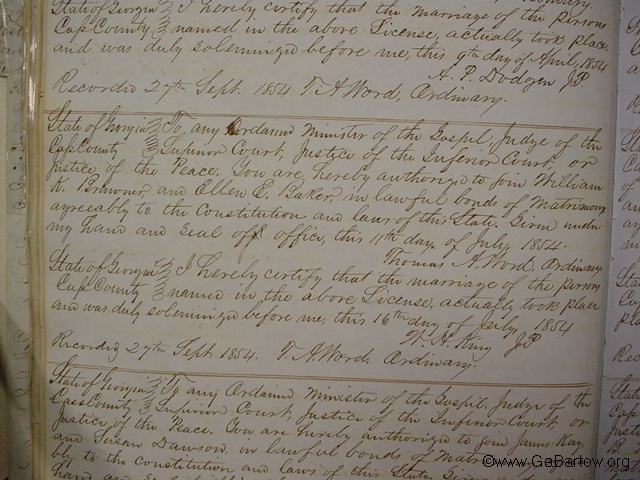 State of Georgia I hereby certify that the marriage of the persons
Cass County named in the above License, actually took place,
and was duly solemnized before me, this 9th day of April, 1854
A. P. Dodgen JP.
Recorded 27th Sept. 1854. T. A Word, Ordinary.
State of Georgia To, any Ordained Minister of the Gospel, Judge of the
Cass County Superior Court, Justice of the Inferior Court or
Justice of the Peace. You are hereby authorized to join William
K. and Ellen E. Baker, in lawful bonds of Matrimony
agreeably to the Constitution and laws of this State. Given under
my hand and seal of office, this 11th day of July 1854.
Thomas A. Word, Ordinary
State of Georgia I hereby certify that the marriage of the persons
Cass County named in the above License, actually took place
and was duly solemnized before me, this 16th day of July, 1854
W. A. King JP
Recorded 27th Sept. 1854. T. A Word, Ordinary.
State of Georgia To any Ordained Minister of the Gospel, Judge of the
Cass County Superior Court, Justice of the Inferior Court or
Justice of the Peace. You are hereby authorized to join James Kay,
and Susan Dawson, in lawful bonds of
bly to the constitution and laws of this State.
hand and
©www.GaBartow.org